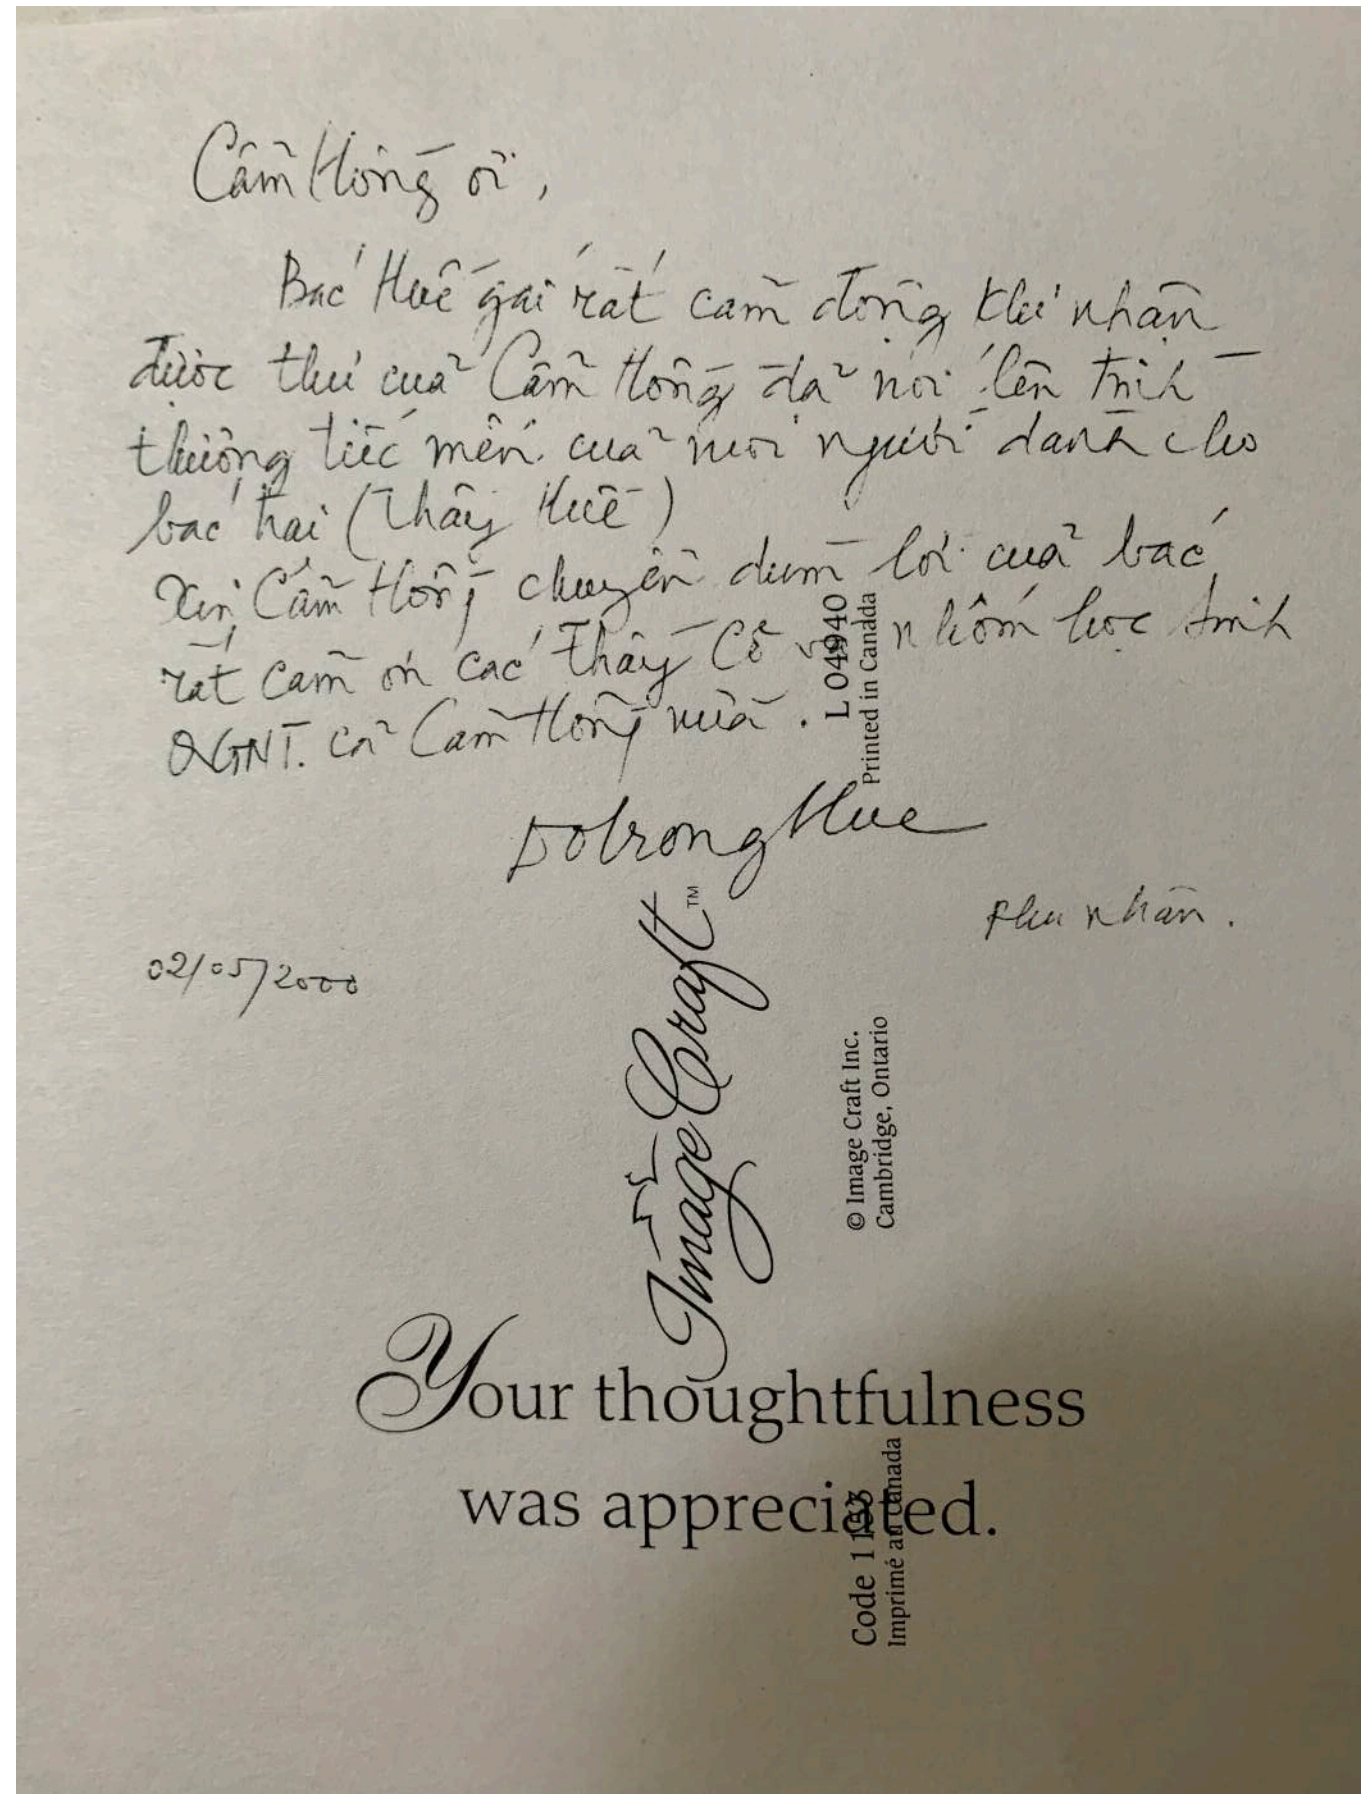 Cẩm Hồng ơi,
Bác Huề gái rất cảm động khi nhận
được thư của Cẩm Hồng đã nói lên tình
thương tiếc mến của mọi người dành cho
bác trai (Thầy Huề)
Xin Cẩm Hồng chuyển dùm lời của bác
rất cảm ơn các Thầy Cô và nhóm học sinh
QGNT. cả Cẩm Hồng nữa.
Dotrong Hue
Phu nhân.
02/05/2000
L 04940
Printed in Canada
Image Craft™
© Image Craft Inc.
Cambridge, Ontario
Your thoughtfulness
was appreciated.
Code 1153
Imprimé au Canada